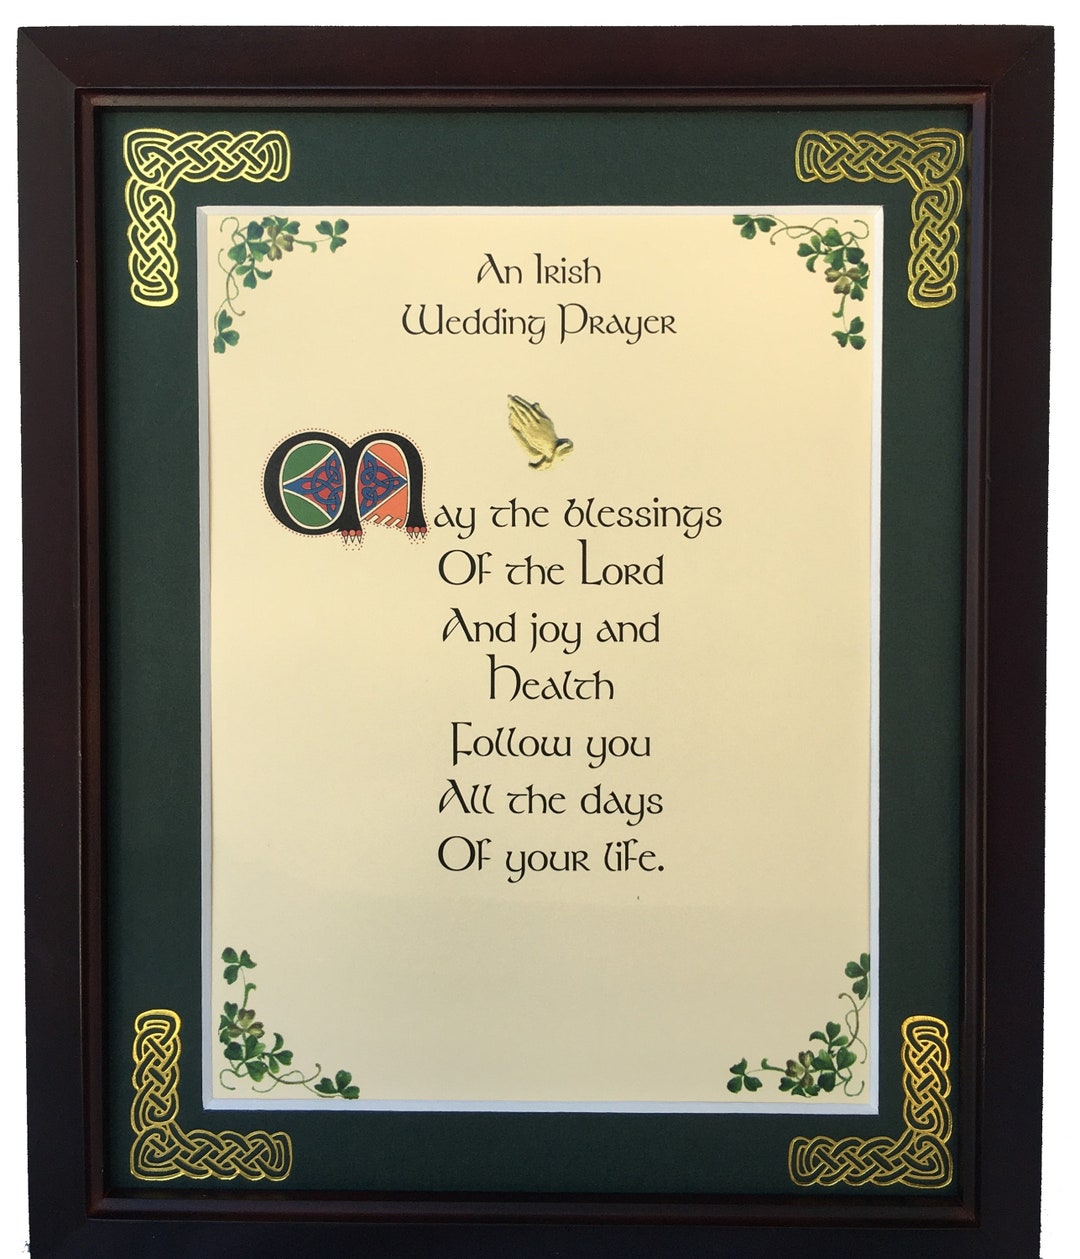 An Irish
Wedding Prayer
May the blessings
Of the Lord
And joy and
Health
Follow you
All the days
Of your life.